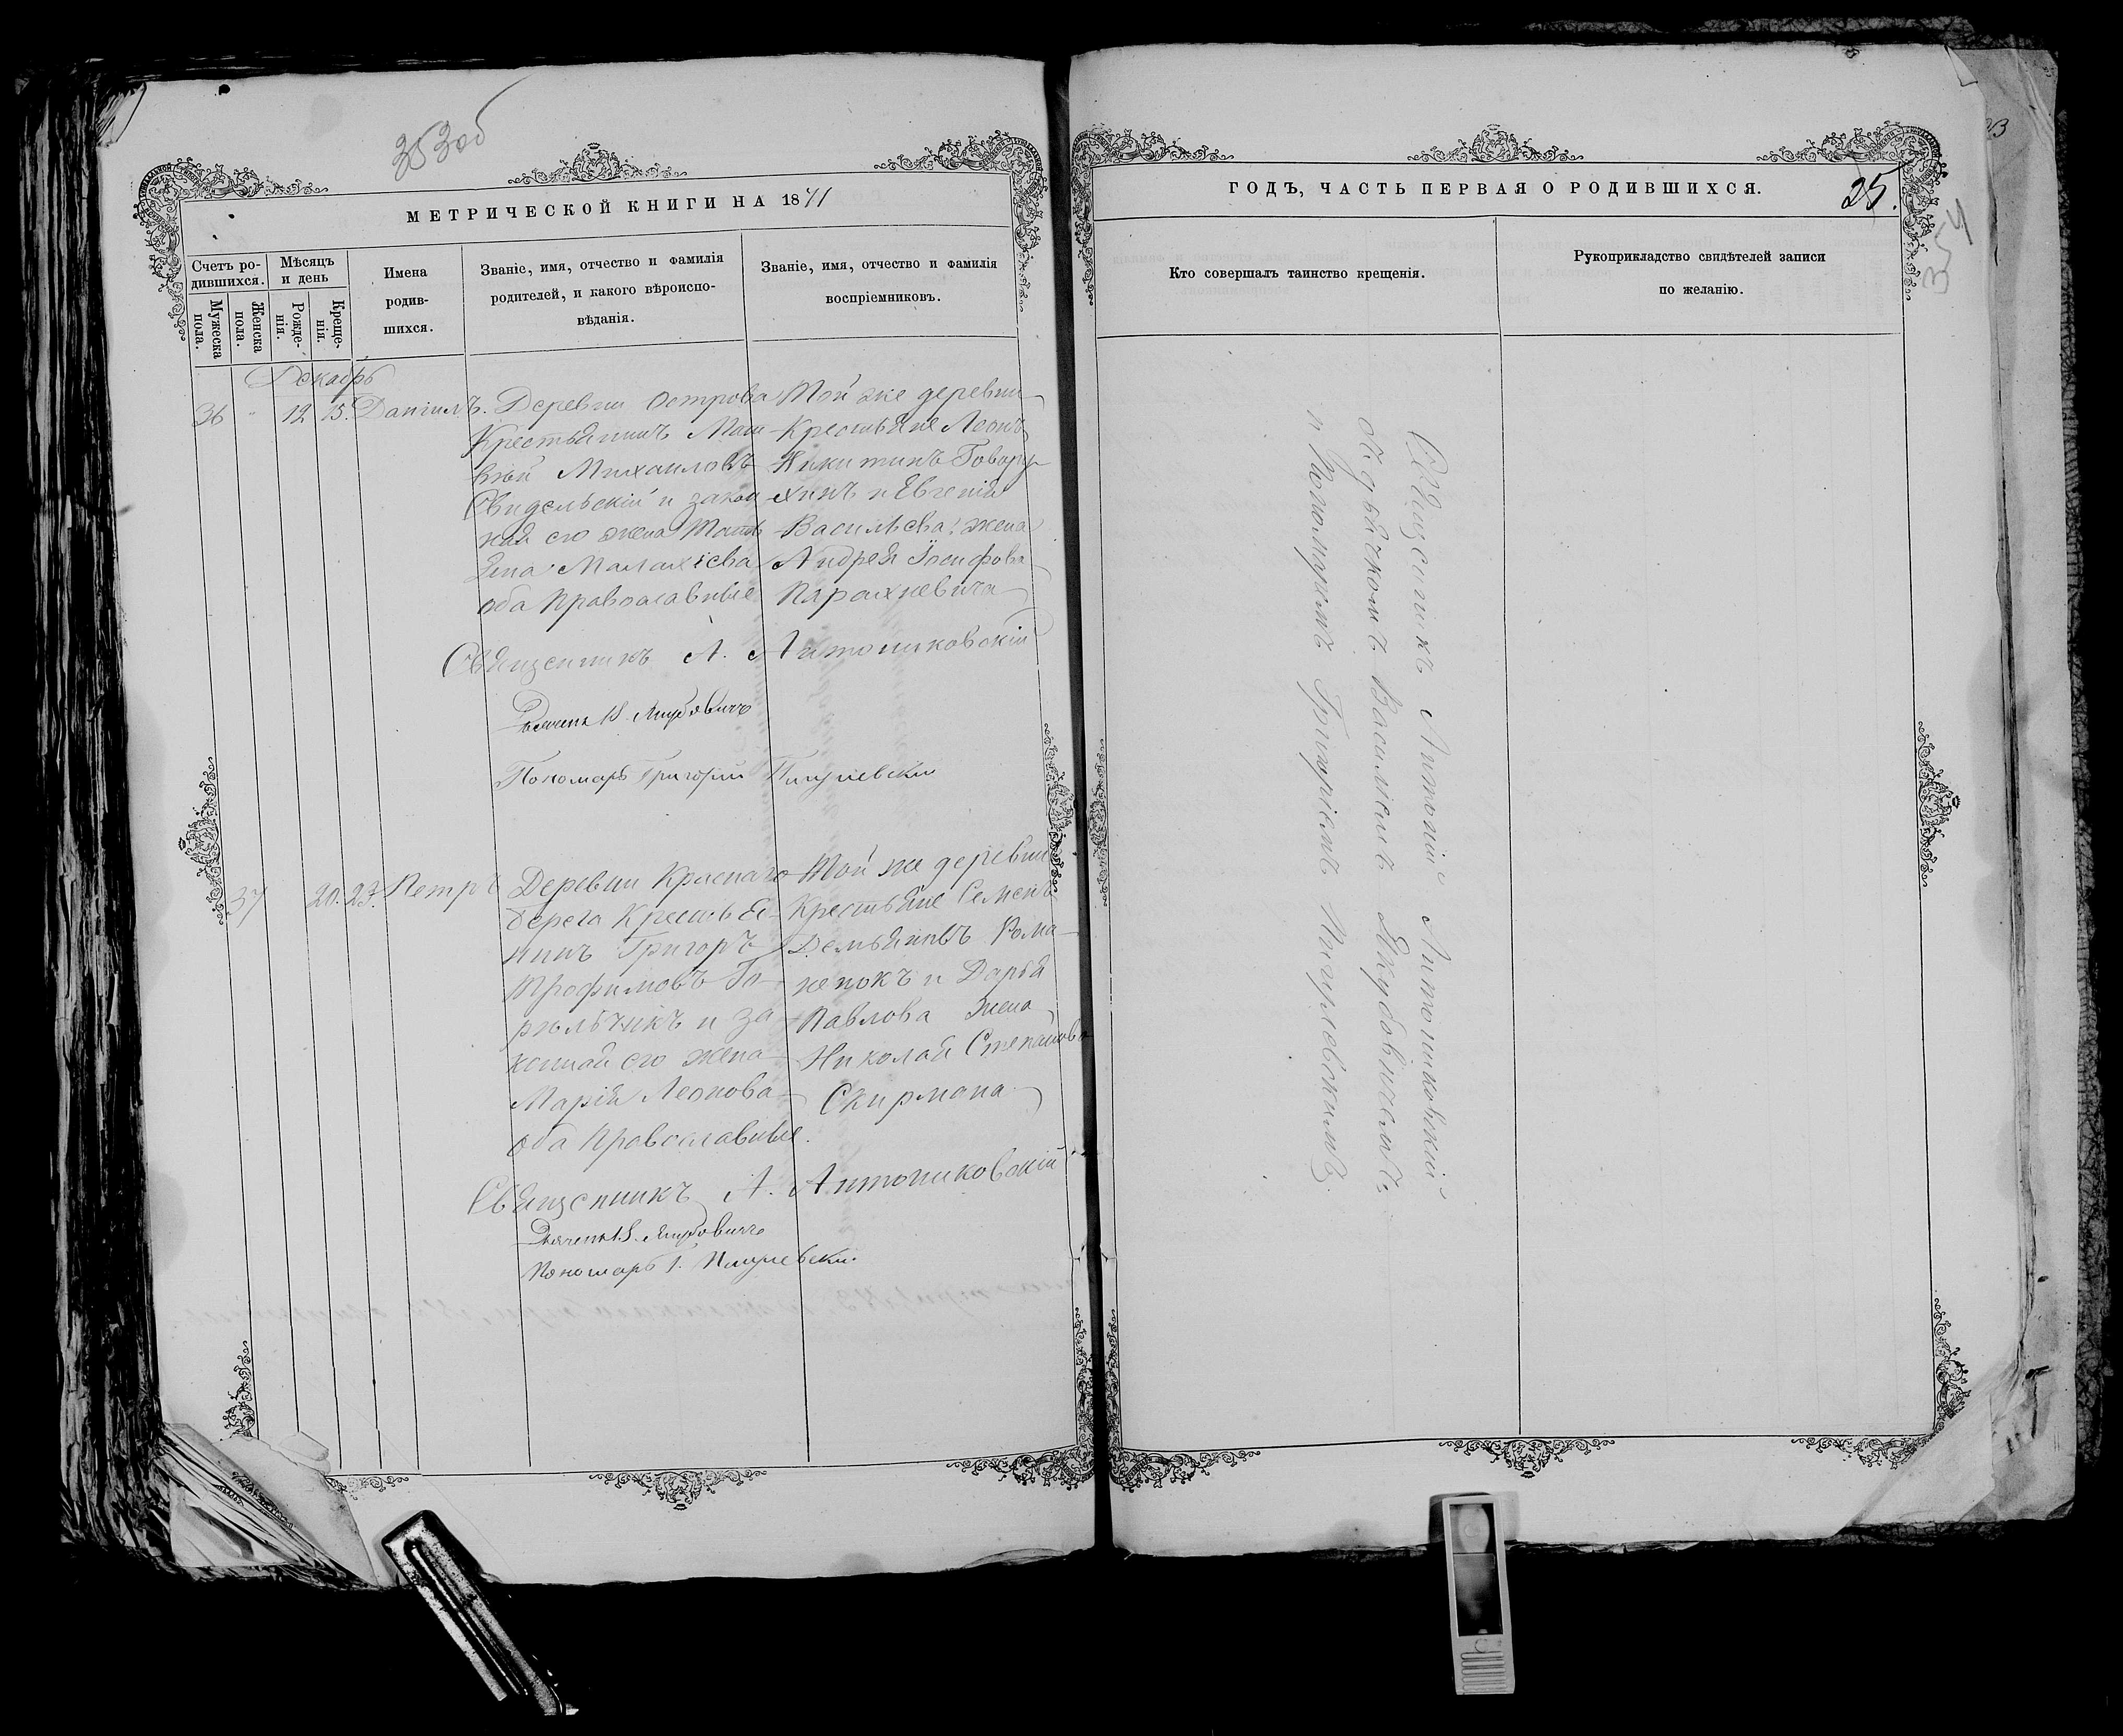 353об
МЕТРИЧЕСКОЙ КНИГИ НА 1871
Счетъ ро-
дившихся.
Мужеска
пола.
Женска
пола.
Мѣсяцъ
и день
Рожде-
нія.
Креще-
нія.
Имена
родив-
шихся.
Званіе, имя, отчество и фамилія
родителей, и какого вѣроиспо-
вѣданія.
Званіе, имя, отчество и фамилія
воспріемниковъ.
Декабрь
36 " 12 15. Даніилъ.
Деревни Острова
Крестьянинъ Мат-
вѣй Михаиловъ
Свидельскій и закон
ная его жена Тать
яна Малахіева
оба православные
Той же деревни
Крестьяне Леонъ
Никитинъ Говору-
хинъ и Евгенія
Васильева жена
Андрея Іосифова
Парахневича
Священникъ А. Антониковскій
Дьячекъ В. Якубовичъ
Пономарь Григорій
37 20. 23. Петръ
Деревни Краснаго
берега Крестья-
нинъ Григоръ
Трофимовъ Го-
рѣльчикъ и за
конная его жена
Марія Леонова
оба православные.
Той же деревни
Крестьяне Семенъ
Демьяновъ Рома
ненокъ и Дарья
Павлова жена
Николая Степанова
Скирмана
Священникъ А. Антониковскій
Дьячекъ В. Якубовичъ
Пономарь Г.
ГОДЪ, ЧАСТЬ ПЕРВАЯ О РОДИВШИХСЯ.
25.
354
Кто совершалъ таинство крещенія.
Рукоприкладство свидѣтелей записи
по желанію.
Священникъ Антоній Антониковскій
съ дьячкомъ Василіемъ Якубовичемъ
и Пономаремъ Григоріемъ